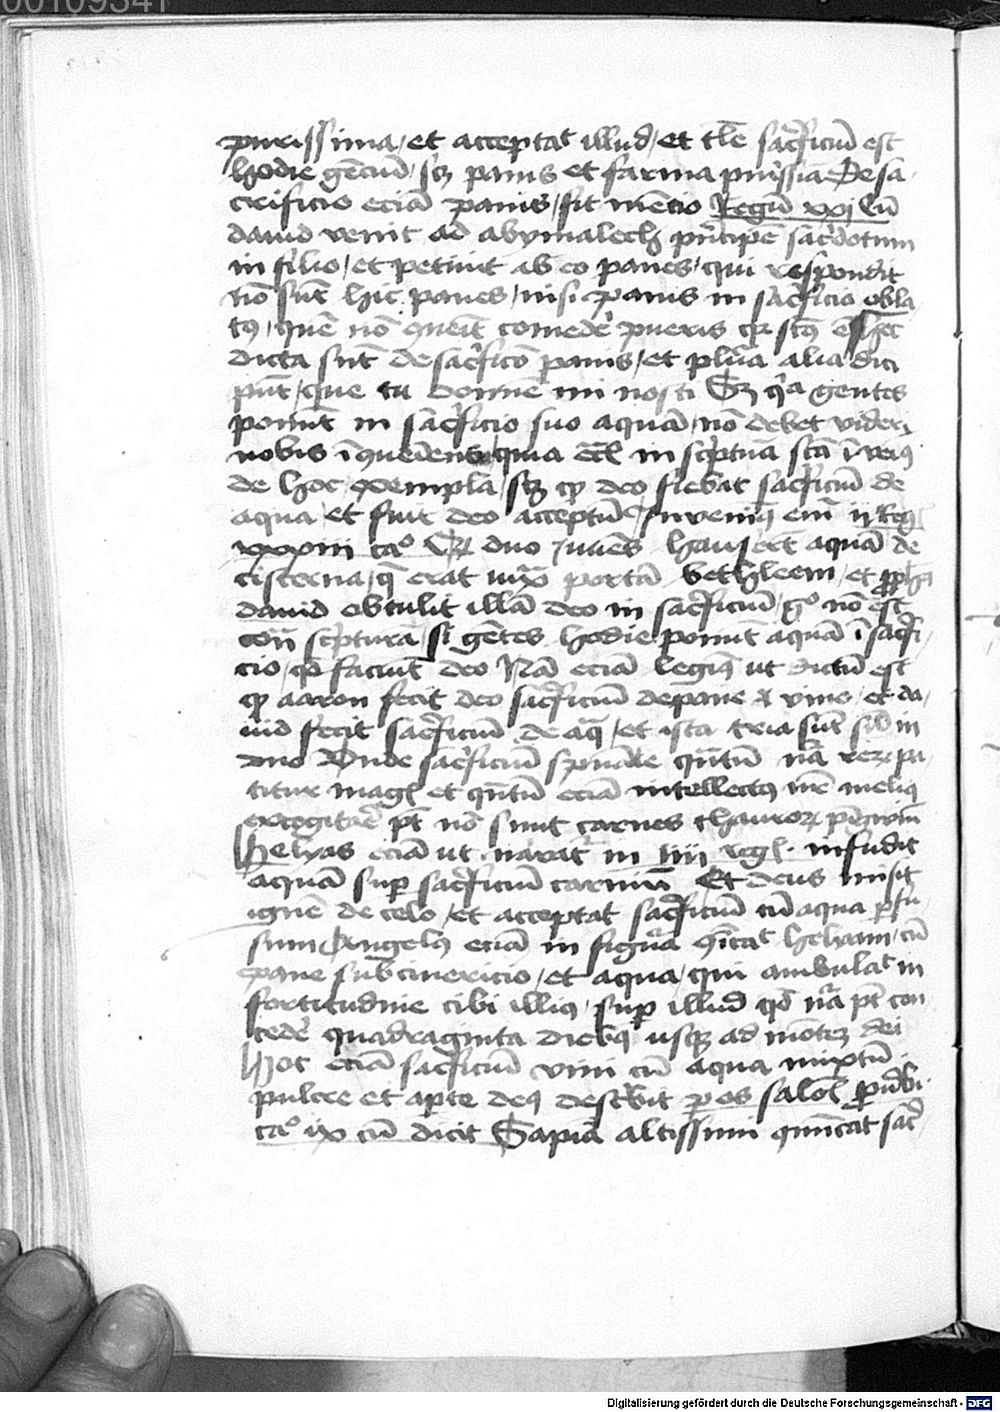 00109341
purissima / et acceptat illud / et tale sacrificiu est
hodie genciu / scz panis et farina purissia De sa-
crificio ecia panis / fit mencio Regu xxj Cu
dauid venit ad abymalech principe sacerdotum
in silio / et petiuit ab eo panes / qui respondit
no sunt hic panes / nisi panis in sacrificio obla
tus / que no queunt comedere pueris qz scus est hec
dicta sunt de sacrifico panis / et plura alia dici
punt / que tu domine mi nosti Sz quia gentes
ponunt in sacrificio suo aqua / no debet videri
nobis inqueniens / quia eciam in scriptura sca
de hoc exempla / scz qd deo fiebat sacrificiu de
aqua / et fuit deo acceptu Inuenimus enim ij Regl
xxxiii ca° Qz duo iuuenes hauserunt aqua de
cisterna / que erat iuxta porta bethleem / et propheta
dauid obtulit illa deo in sacrificiu / g° no est
contra scriptura / si gentes hodie ponunt aqua i sacrifi-
cio / quod faciunt deo Nam ecia legimus ut dictu est
qd aaron fecit deo sacrificiu de pane et vino / et da-
uid fecit sacrificiu de aqua / et ista tria sunt simul in
vno Vnde sacrificiu spirituale quantum natura
titur magis et quantum ecia intellectus melius
excogitare potest no sunt carnes thauror
Helyas ecia ut narrat in iiii regl. infudit
aqua super sacrificiu carnium Et deus misit
igne de celo / et acceptat sacrificiu cu aqua perfu-
sum Angelus ecia in figura helyam / cu
pane subcinericio / et aqua / qui ambulat in
fortitudine cibi illius / super illud quod natura potest con
cedere quadraginta diebus usque ad monte dei
Hoc ecia sacrificiu vini cu aqua mixtu
pulcre et aperte deus describit per os salomonis prouerbi-
ca° ix cu dicit Sapia altissimi
Digitalisierung gefördert durch die Deutsche Forschungsgemeinschaft - DFG